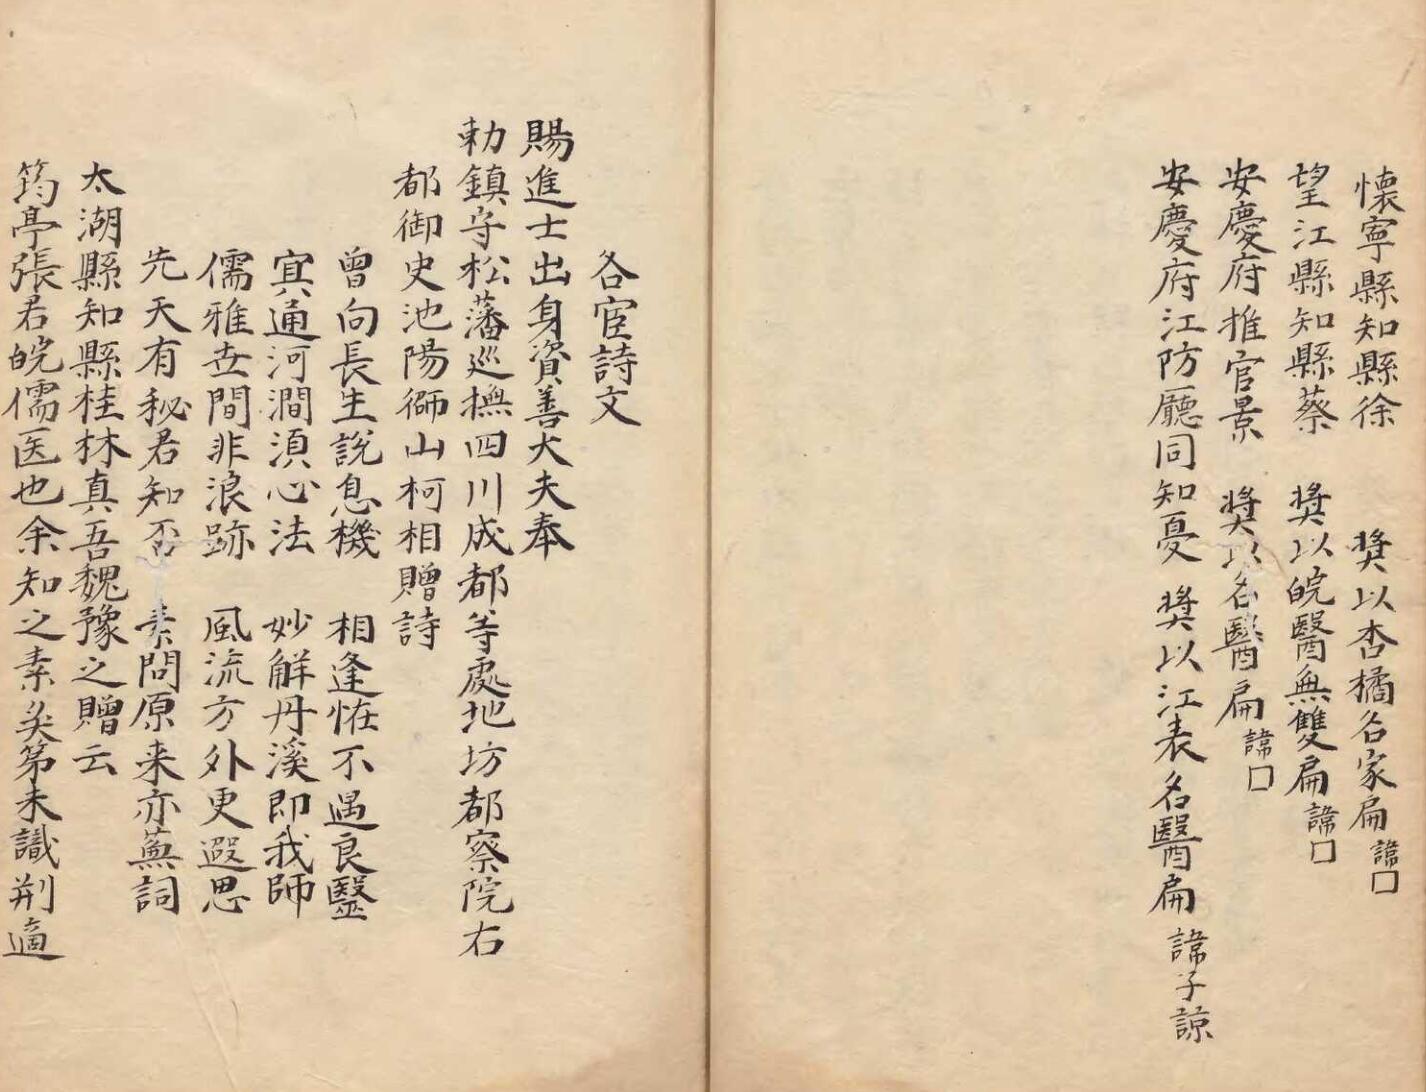 懷寧縣知縣徐　獎以杏橘名家扁諱囗
望江縣知縣蔡　獎以皖醫無雙扁諱囗
安慶府推官景　獎以名醫扁諱囗
安慶府江防廳同知憂　獎以江表名醫扁諱子諒
各宦詩文
賜進士出身資善大夫奉
勅鎮守松藩巡撫四川成都等處地坊都察院右
都御史池陽㣔山柯相贈詩
曾向長生說息機　相逢恠不遇良毉
㝠通河澗湏心法　妙解丹溪即我師
儒雅世間非浪跡　風流方外更遐思
先天有秘君知否　素問原来亦蕪詞
太湖縣知縣桂林真吾魏豫之贈云
筠亭張君皖儒医也余知之素矣第未識荆適